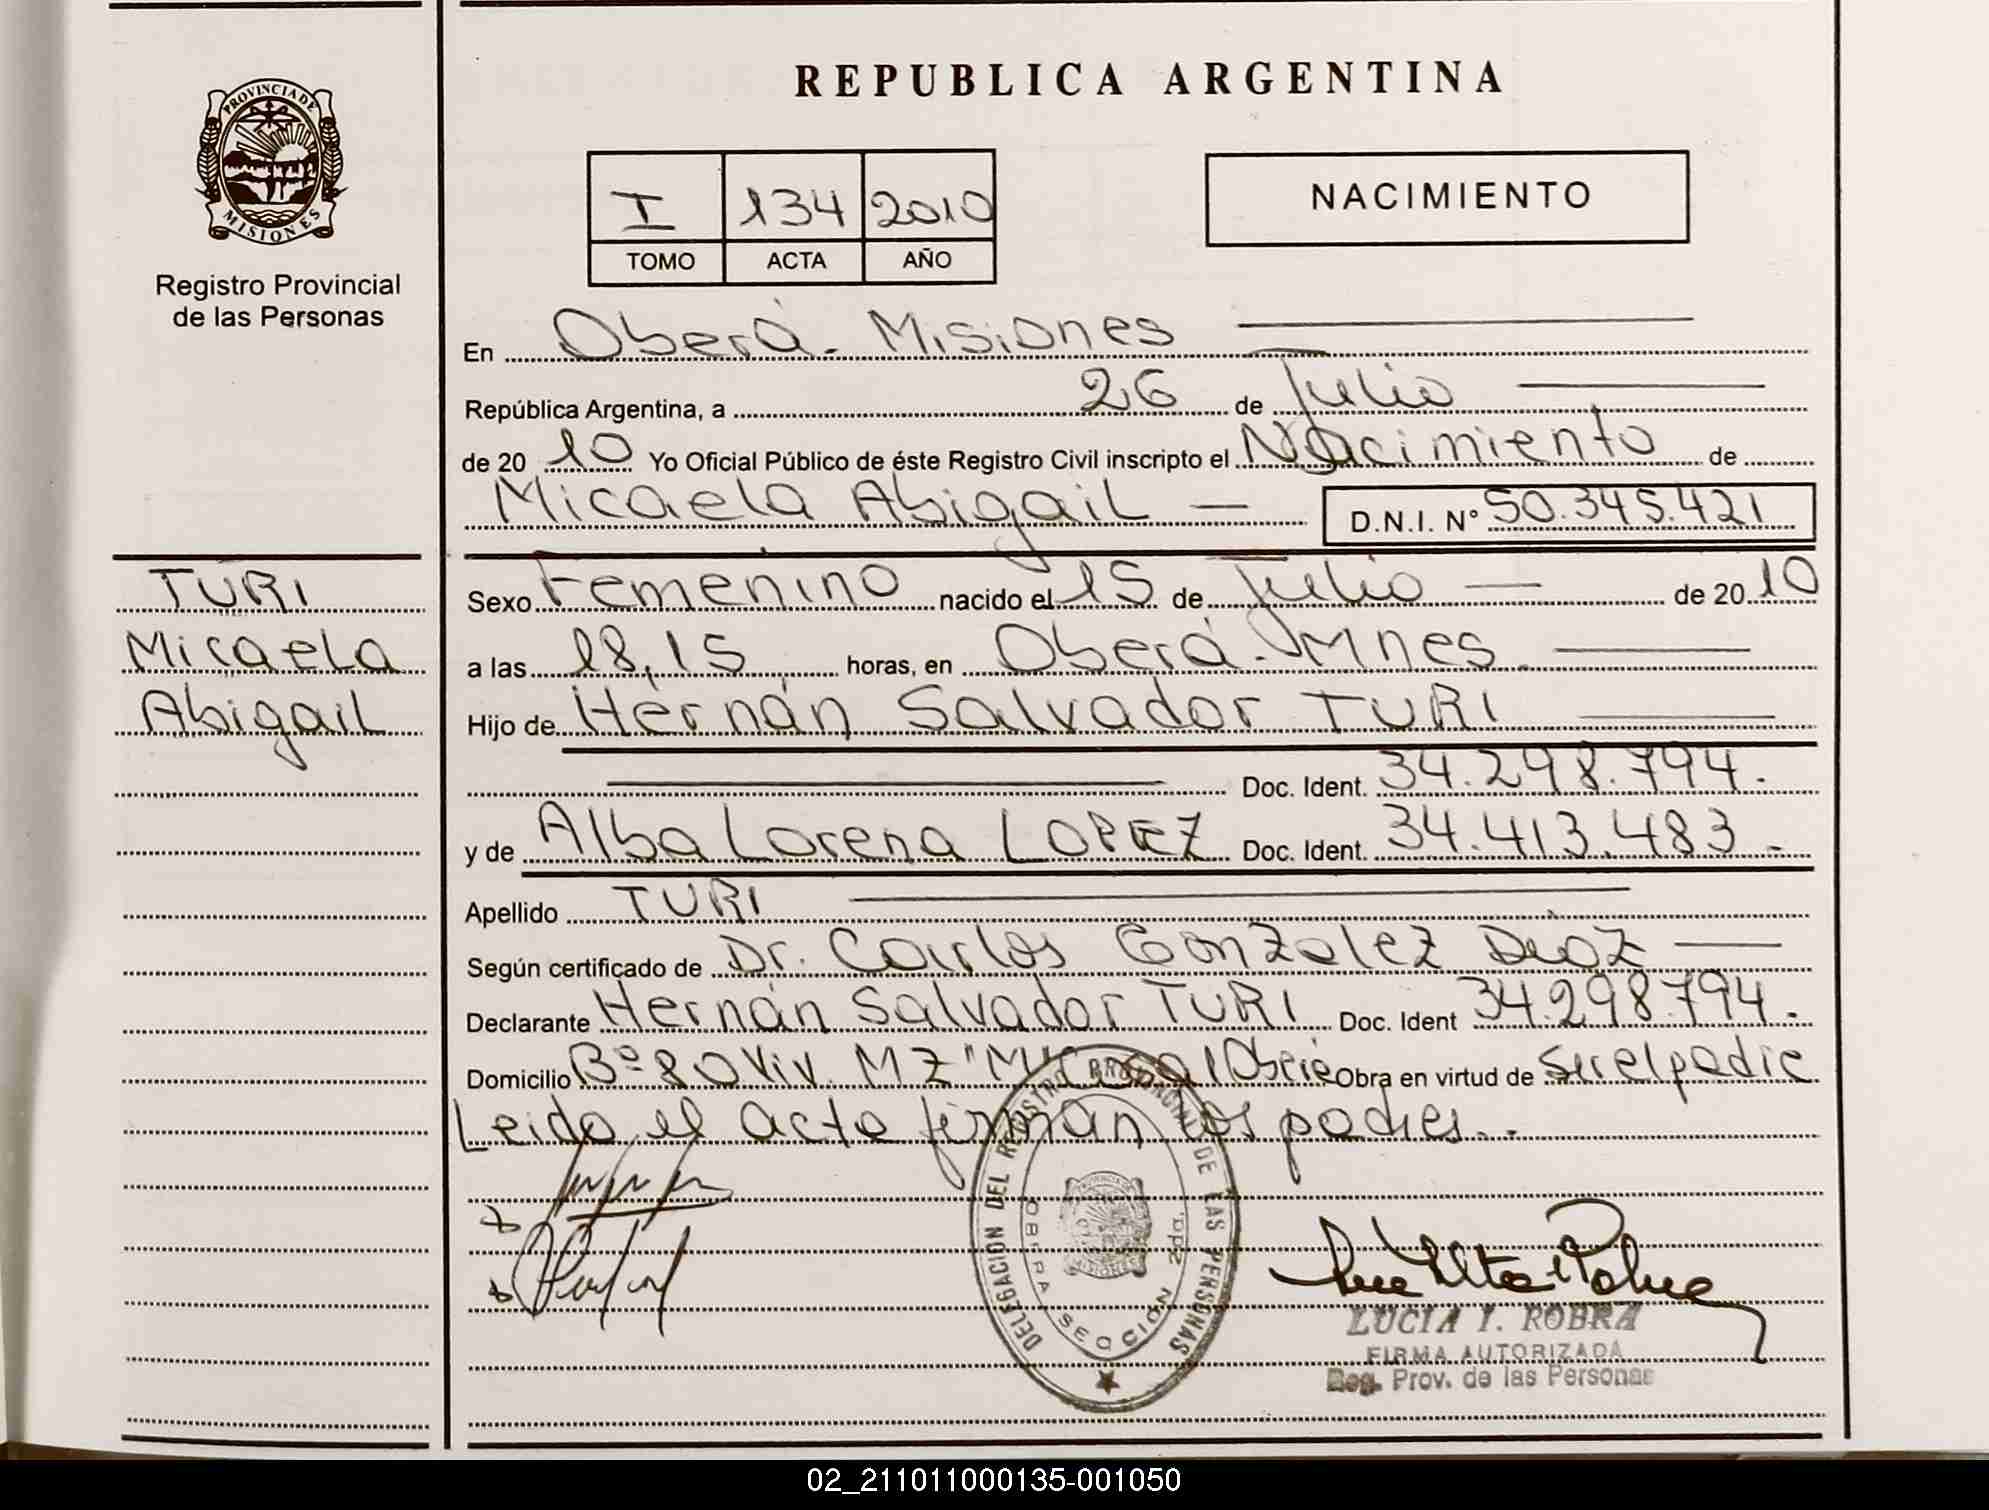 PROVINCIA DE
MISIONES
Registro Provincial
de las Personas
TURI
Micaela
Abigail
REPUBLICA ARGENTINA
I 134 2010
TOMO ACTA AÑO
NACIMIENTO
En Oberá. Misiones
República Argentina, a 26 de Julio
de 20 10 Yo Oficial Público de éste Registro Civil inscripto el Nacimiento de
Micaela Abigail D.N.I. N° 50.345.421
Sexo Femenino nacido el 15 de Julio de 20 10
a las 18,15 horas, en Oberá. Mnes.
Hijo de Hernán Salvador TURI
Doc. Ident. 34.298.794.
y de Alba Lorena LOPEZ Doc. Ident. 34.413.483.
Apellido TURI
Según certificado de Dr. Carlos Gonzalez Diaz
Declarante Hernán Salvador TURI Doc. Ident 34.298.794.
Domicilio Bº 80 Viv. MZ "M" Casa 1 Obra en virtud de Ser el padre
Leido el acta firman los padres..
DELEGACION DEL REGISTRO PROVINCIAL DE LAS PERSONAS
OBERA SECCION 2da.
LUCIA I. ROBRA
FIRMA AUTORIZADA
Reg. Prov. de las Personas
02_211011000135-001050